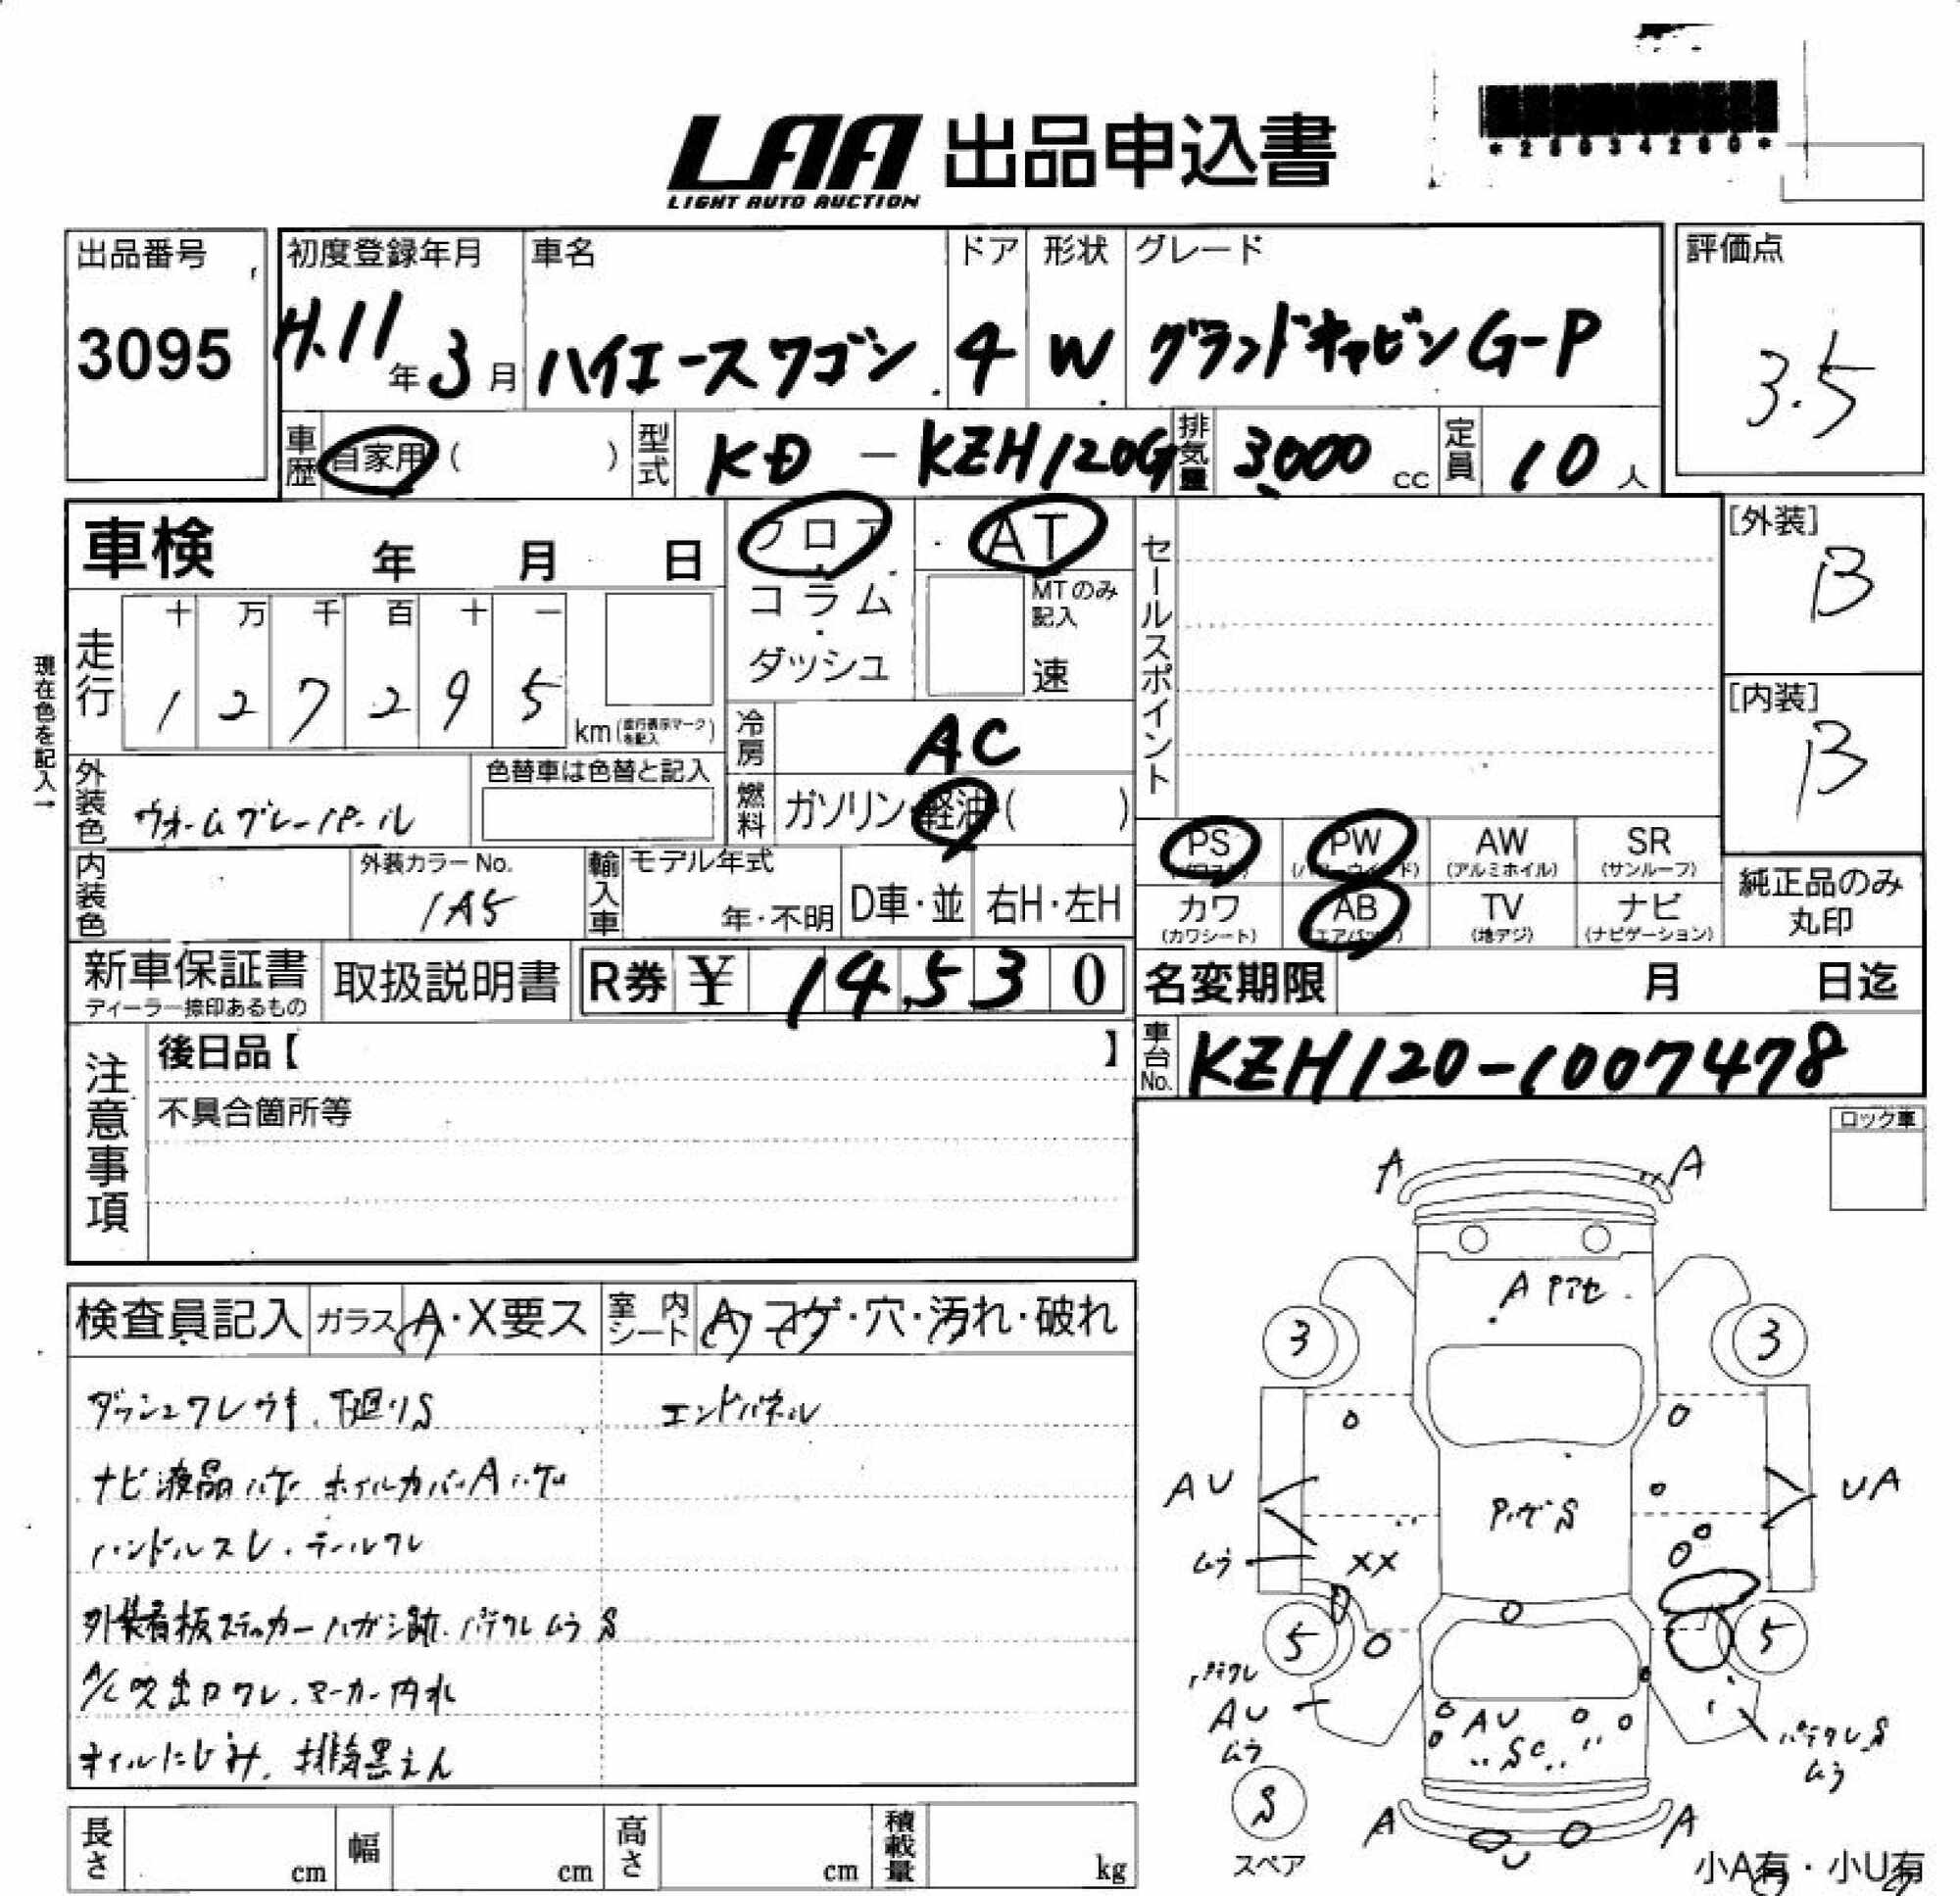 *28034280*
LAA 出品申込書
LIGHT AUTO AUCTION
出品番号
3095
初度登録年月
H.11年3月
車名
ハイエースワゴン
ドア
4
形状
W
グレード
グランドキャビンG-P
評価点
3.5
車歴
自家用( )
型式
KD-KZH120G
排気量
3,000 cc
定員
10人
車検 年 月 日
フロア
コラム
ダッシュ
AT
MTのみ記入
速
セールスポイント
[外装]
B
[内装]
B
現在色を記入→
走行
十 万 千 百 十 一
1 2 7 2 9 5
km(走行表示マークを記入)
冷房
AC
外装色
ウォームグレーパール
色替車は色替と記入
燃料
ガソリン・軽油( )
内装色
外装カラーNo.
1A5
輸入車
モデル年式
年・不明
D車・並
右H・左H
PS
PW
AW
(アルミホイル)
SR
(サンルーフ)
カワ
(カワシート)
AB
(エアバッグ)
TV
(地デジ)
ナビ
(ナビゲーション)
純正品のみ
丸印
新車保証書
ディーラー捺印あるもの
取扱説明書
R券 ¥ 14,530
名変期限 月 日迄
注意事項
後日品【 】
不具合箇所等
車台No.
KZH120-1007478
ロック車
検査員記入
ガラス
A・X要ス
室内シート
A・コゲ・穴・汚れ・破れ
ダッシュワレウキ、下廻りS
エンドパネル
ナビ液晶 ホイルカバーAハゲ
ハンドルスレ・テールワレ
外装看板ステッカーハガシ跡、パテワレムラS
A/C吹出口ワレ、マーカー内水
オイルにじみ、排気黒えん
A A
A
3 3
AU UA
S
ムラ XX
5 5
パテワレ
AU
ムラ
AU
SC
パテワレS
ムラ
S
スペア
A A
U
小A有・小U有
長さ cm
幅 cm
高さ cm
積載量 kg